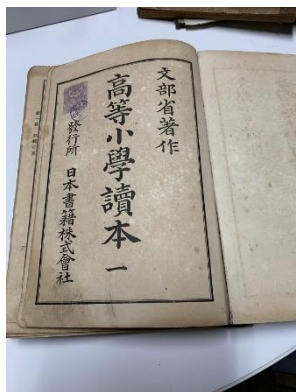 文部省著作
高等小學讀本 一
發行所 日本書籍株式會社